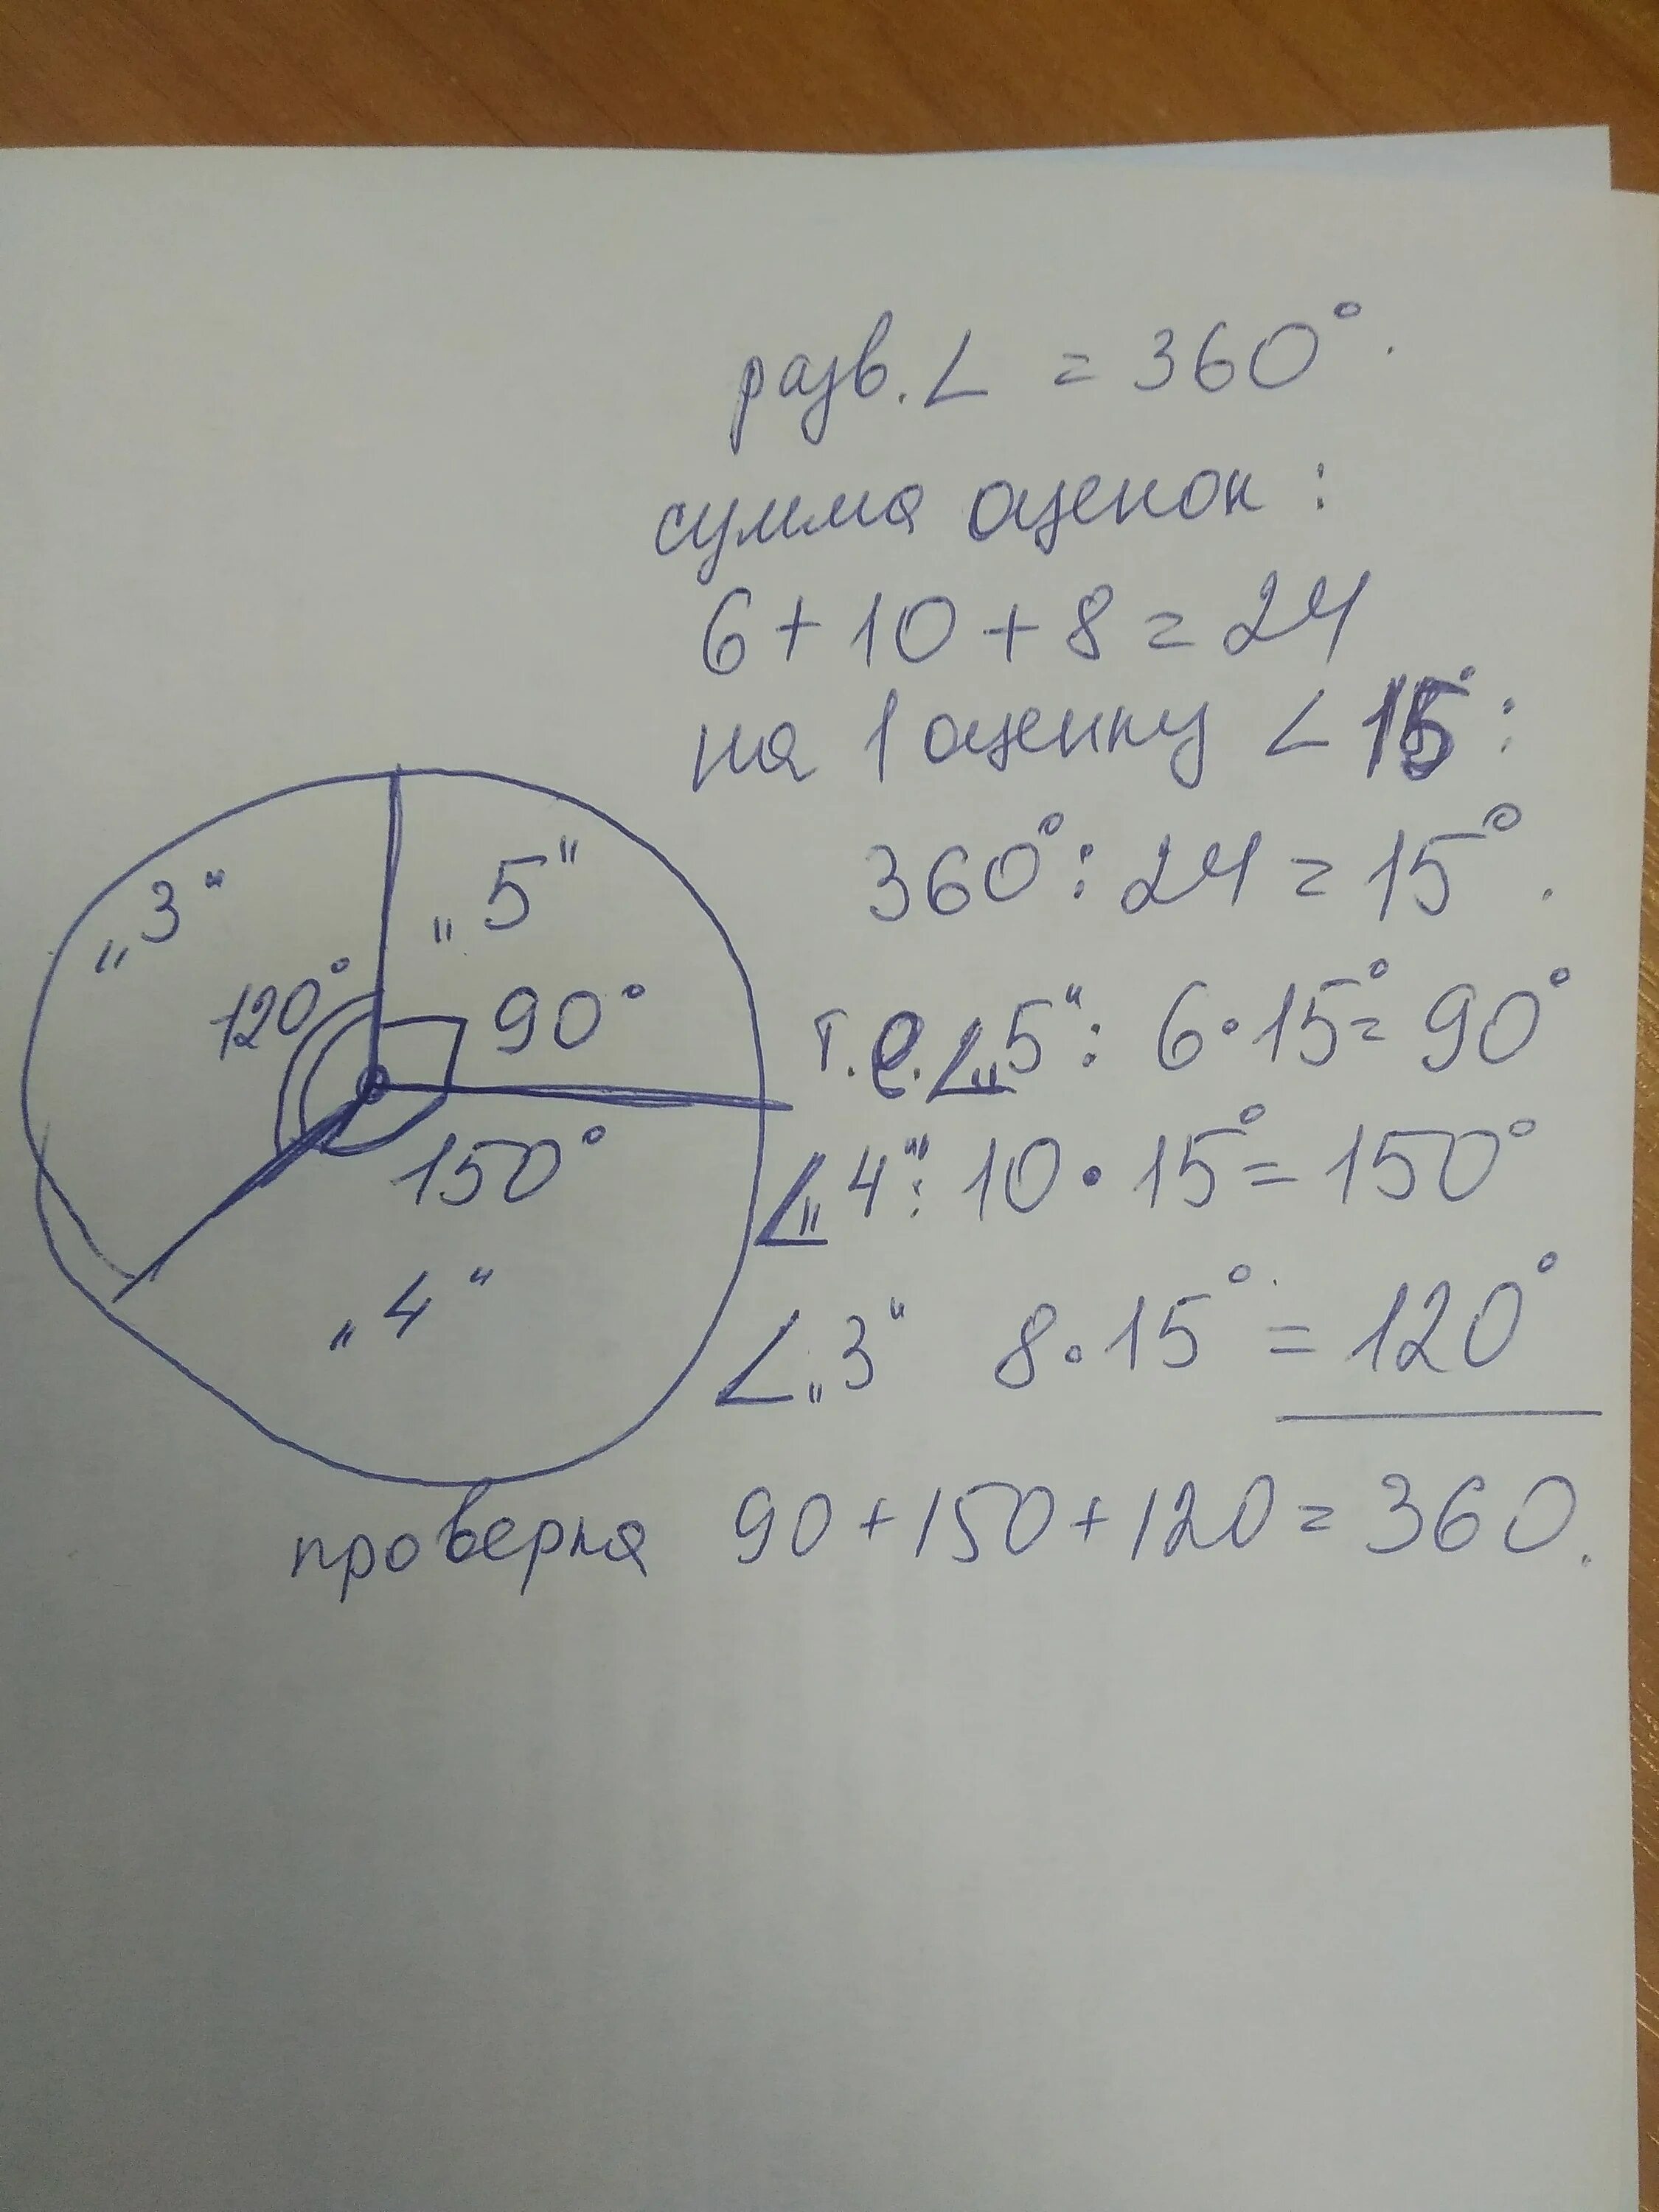 разв. ∠ = 360°.
сумма оценок:
6 + 10 + 8 = 24
на 1 оценку ∠ 15°:
360° : 24 = 15°.
т.е. ∠„5“: 6·15° = 90°
∠„4“: 10·15° = 150°
∠„3“ 8·15° = 120°
проверка 90+150+120=360.
„3“
„5“
120°
90°
150°
„4“